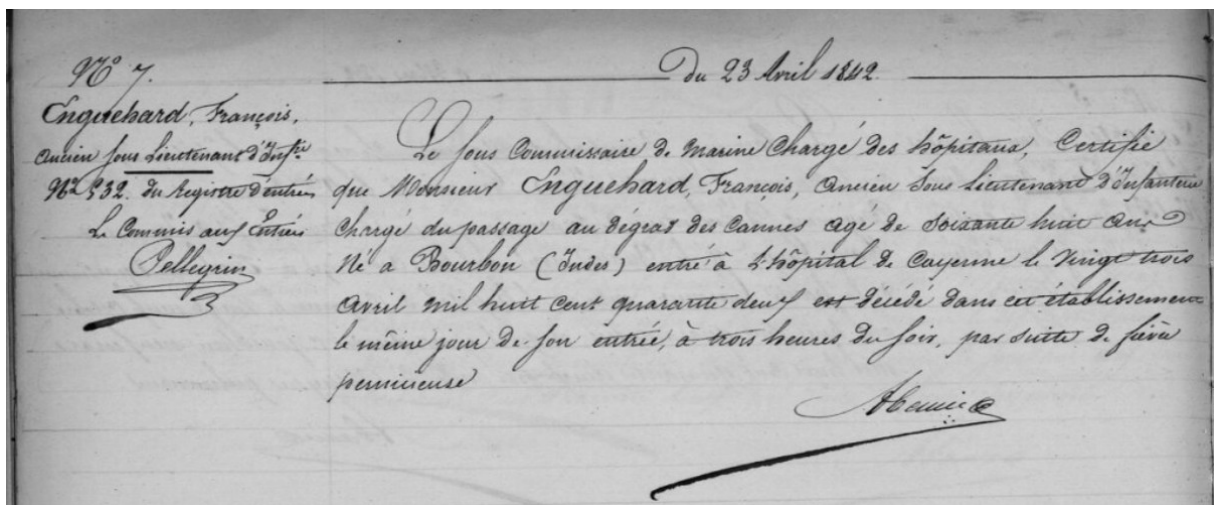 N° 7.
Du 23 Avril 1842.
Enquehard, François,
ancien sous Lieutenant d'Infie
N° 532. du Registre d'entrées
Le Commis aux Entrées
Pellegrin
Le sous Commissaire de Marine chargé des hôpitaux, Certifie
que Monsieur Enquehard, François, ancien Sous Lieutenant d'Infanterie
chargé du passage au dégras des Cannes agé de soixante huit ans
Né a Bourbon (Indes) entré à l'hôpital de Cayenne le Vingt trois
avril mil huit cent quarante deux est décédé dans cet établissement
le même jour de son entrée, à trois heures du soir, par suite de fièvre
pernicieuse